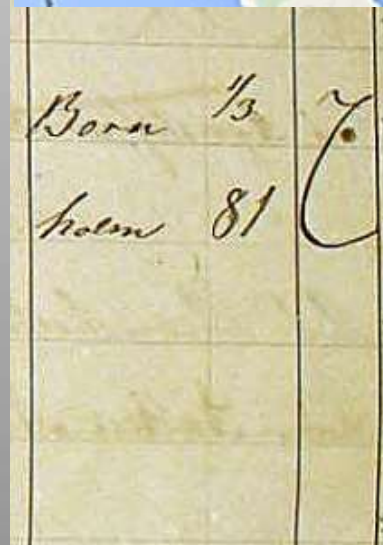 Born 1/3
holm 81